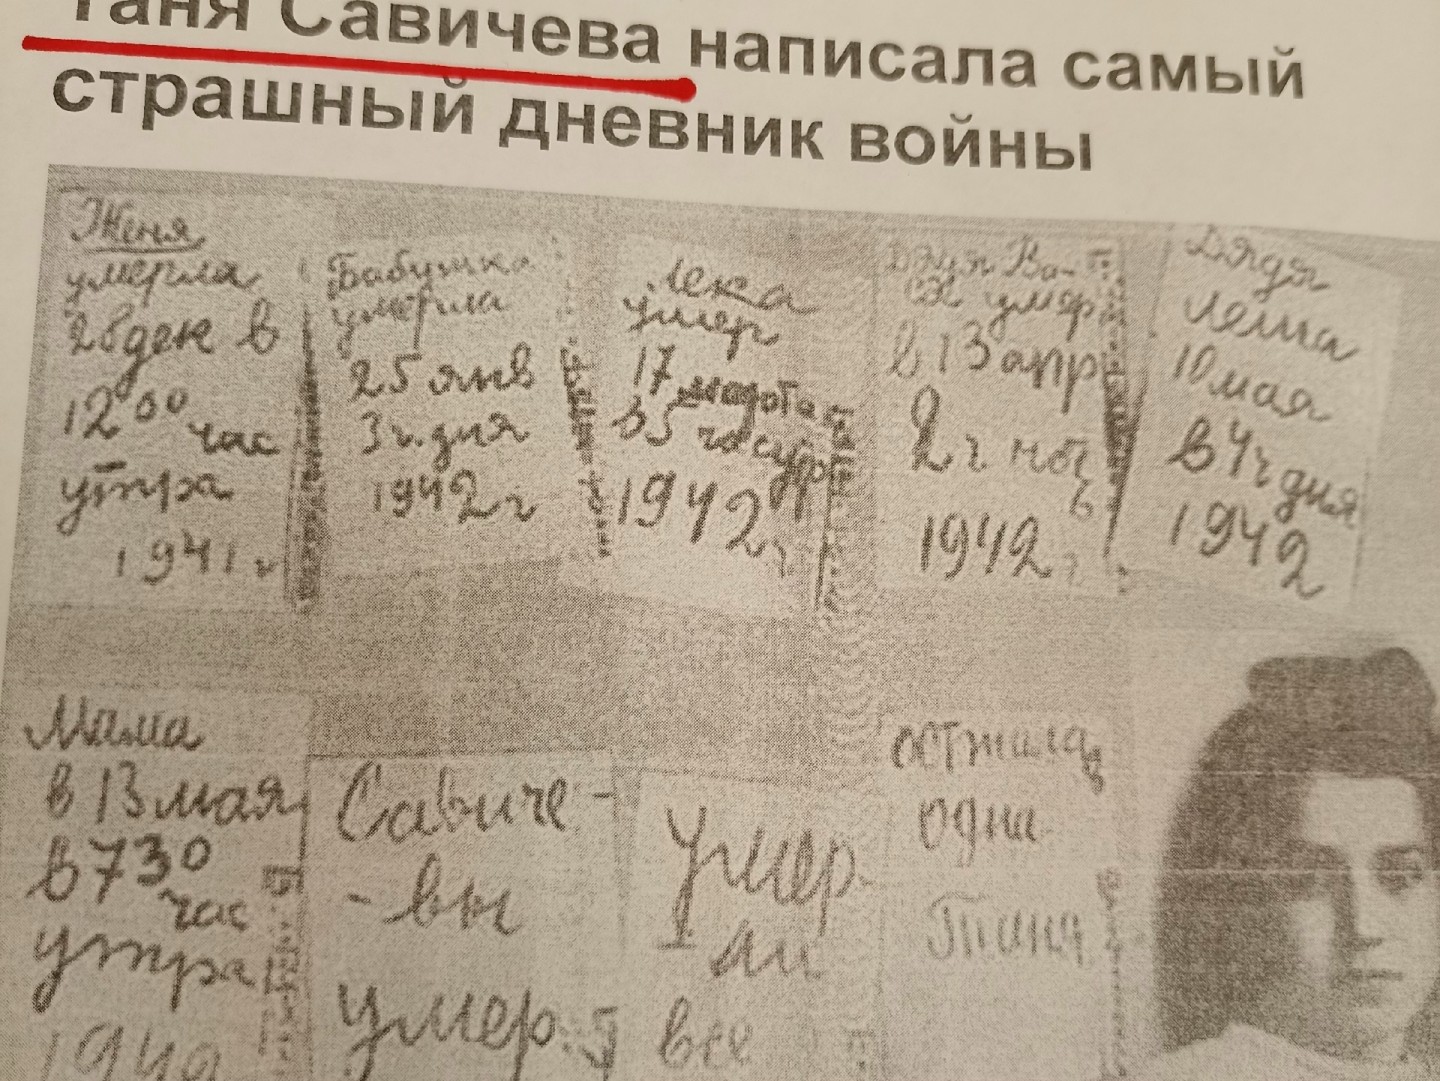 Таня Савичева написала самый
страшный дневник войны
Женя
умерла
28 дек в
12 00 час
утра
1941 г
Бабушка
умерла
25 янв
3 ч. дня
1942 г
Лека
умер
17 марта
в 5 час утр
1942 г
Дядя Ва-
ся умер
в 13 апр
2 ч ноч
1942 г
Дядя
Леша
10 мая
в 4 ч дня
1942
Мама
в 13 мая
в 730
час
утра
1942
Савиче-
-вы
умер
Умер
ли
все
Осталась
одна
Таня